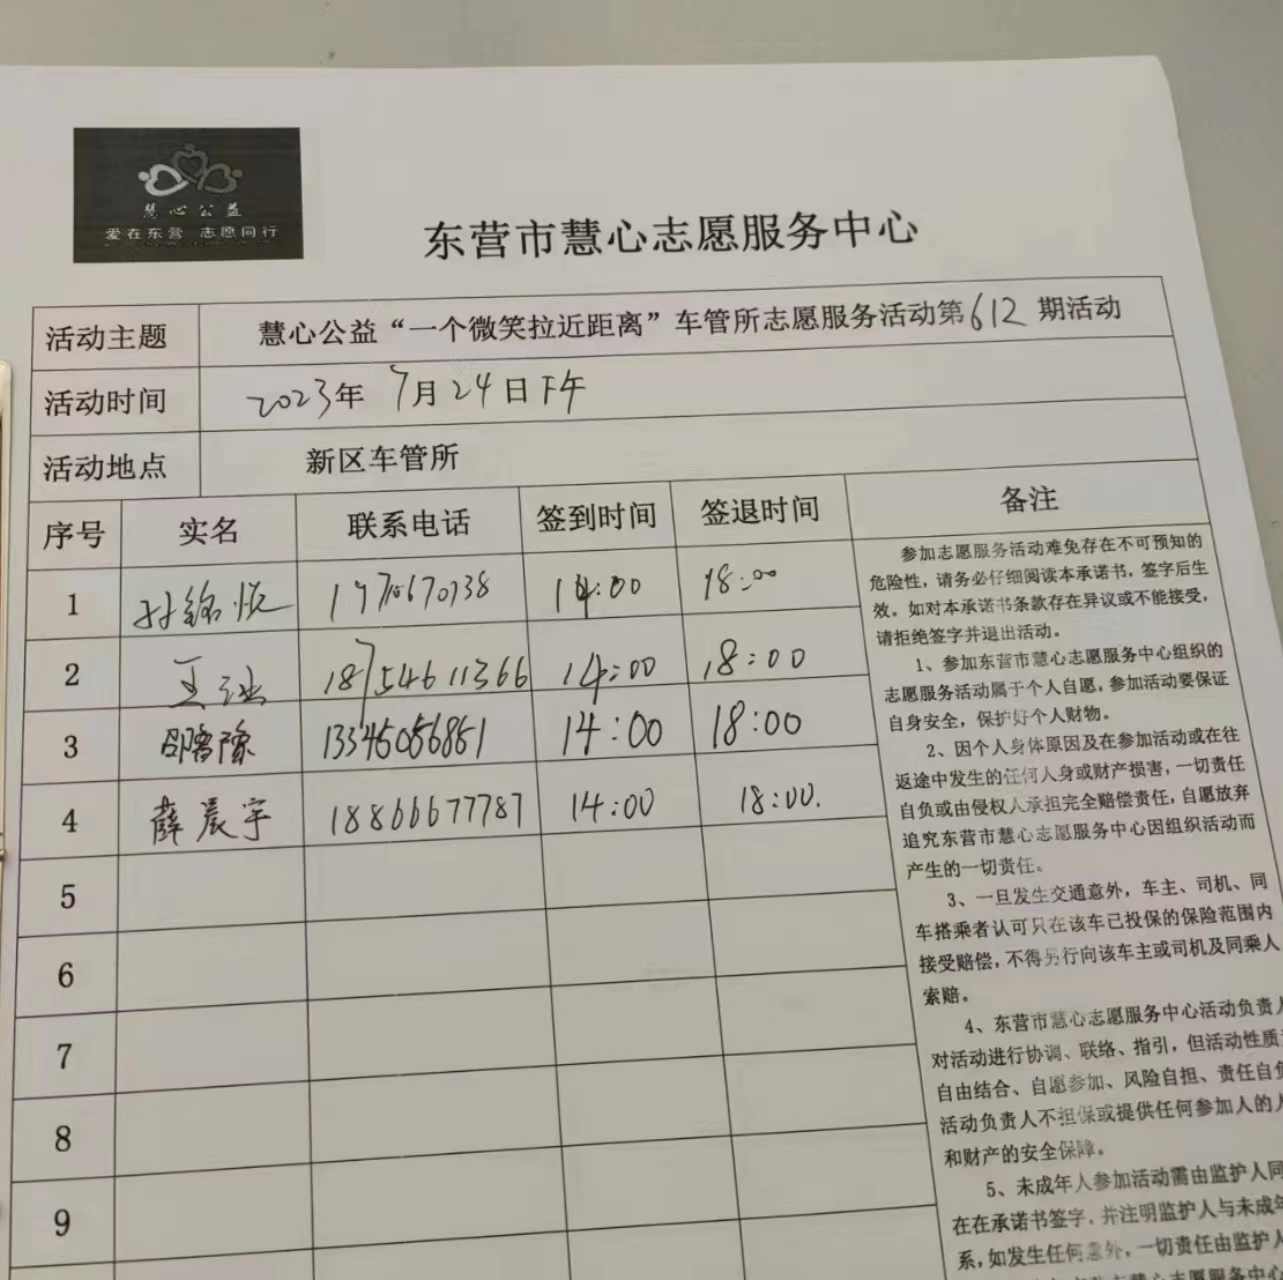 慧心公益
爱在东营 志愿同行
东营市慧心志愿服务中心
活动主题 慧心公益“一个微笑拉近距离”车管所志愿服务活动第612期活动
活动时间 2023年 7月24日下午
活动地点 新区车管所
序号 实名 联系电话 签到时间 签退时间 备注
1 孙铭悦 14:00 18:00
2 王 18754611366 14:00 18:00
3 邵睿豫 13345056851 14:00 18:00
4 薛晨宇 18866677787 14:00 18:00.
5
6
7
8
9
参加志愿服务活动难免存在不可预知的
危险性，请务必仔细阅读本承诺书，签字后生
效。如对本承诺书条款存在异议或不能接受，
请拒绝签字并退出活动。
1、参加东营市慧心志愿服务中心组织的
志愿服务活动属于个人自愿，参加活动要保证
自身安全，保护好个人财物。
2、因个人身体原因及在参加活动或在往
返途中发生的任何人身或财产损害，一切责任
自负或由侵权人承担完全赔偿责任，自愿放弃
追究东营市慧心志愿服务中心因组织活动而
产生的一切责任。
3、一旦发生交通意外，车主、司机、同
车搭乘者认可只在该车已投保的保险范围内
接受赔偿，不得另行向该车主或司机及同乘人
索赔。
4、东营市慧心志愿服务中心活动负责人
对活动进行协调、联络、指引，但活动性质
自由结合、自愿参加、风险自担、责任自负
活动负责人不担保或提供任何参加人的人
和财产的安全保障。
5、未成年人参加活动需由监护人同
在在承诺书签字，并注明监护人与未成年
系，如发生任何意外，一切责任由监护人
东营市慧心志愿服务中心